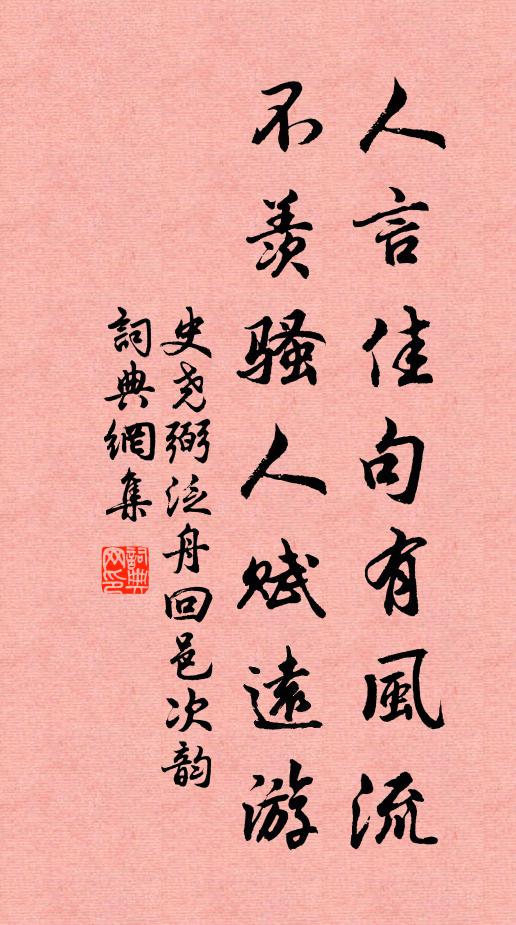 人言佳句有風流
不羨騷人賦遠游
史尧弼泛舟回邑次韵
詞典網集
詞典网印